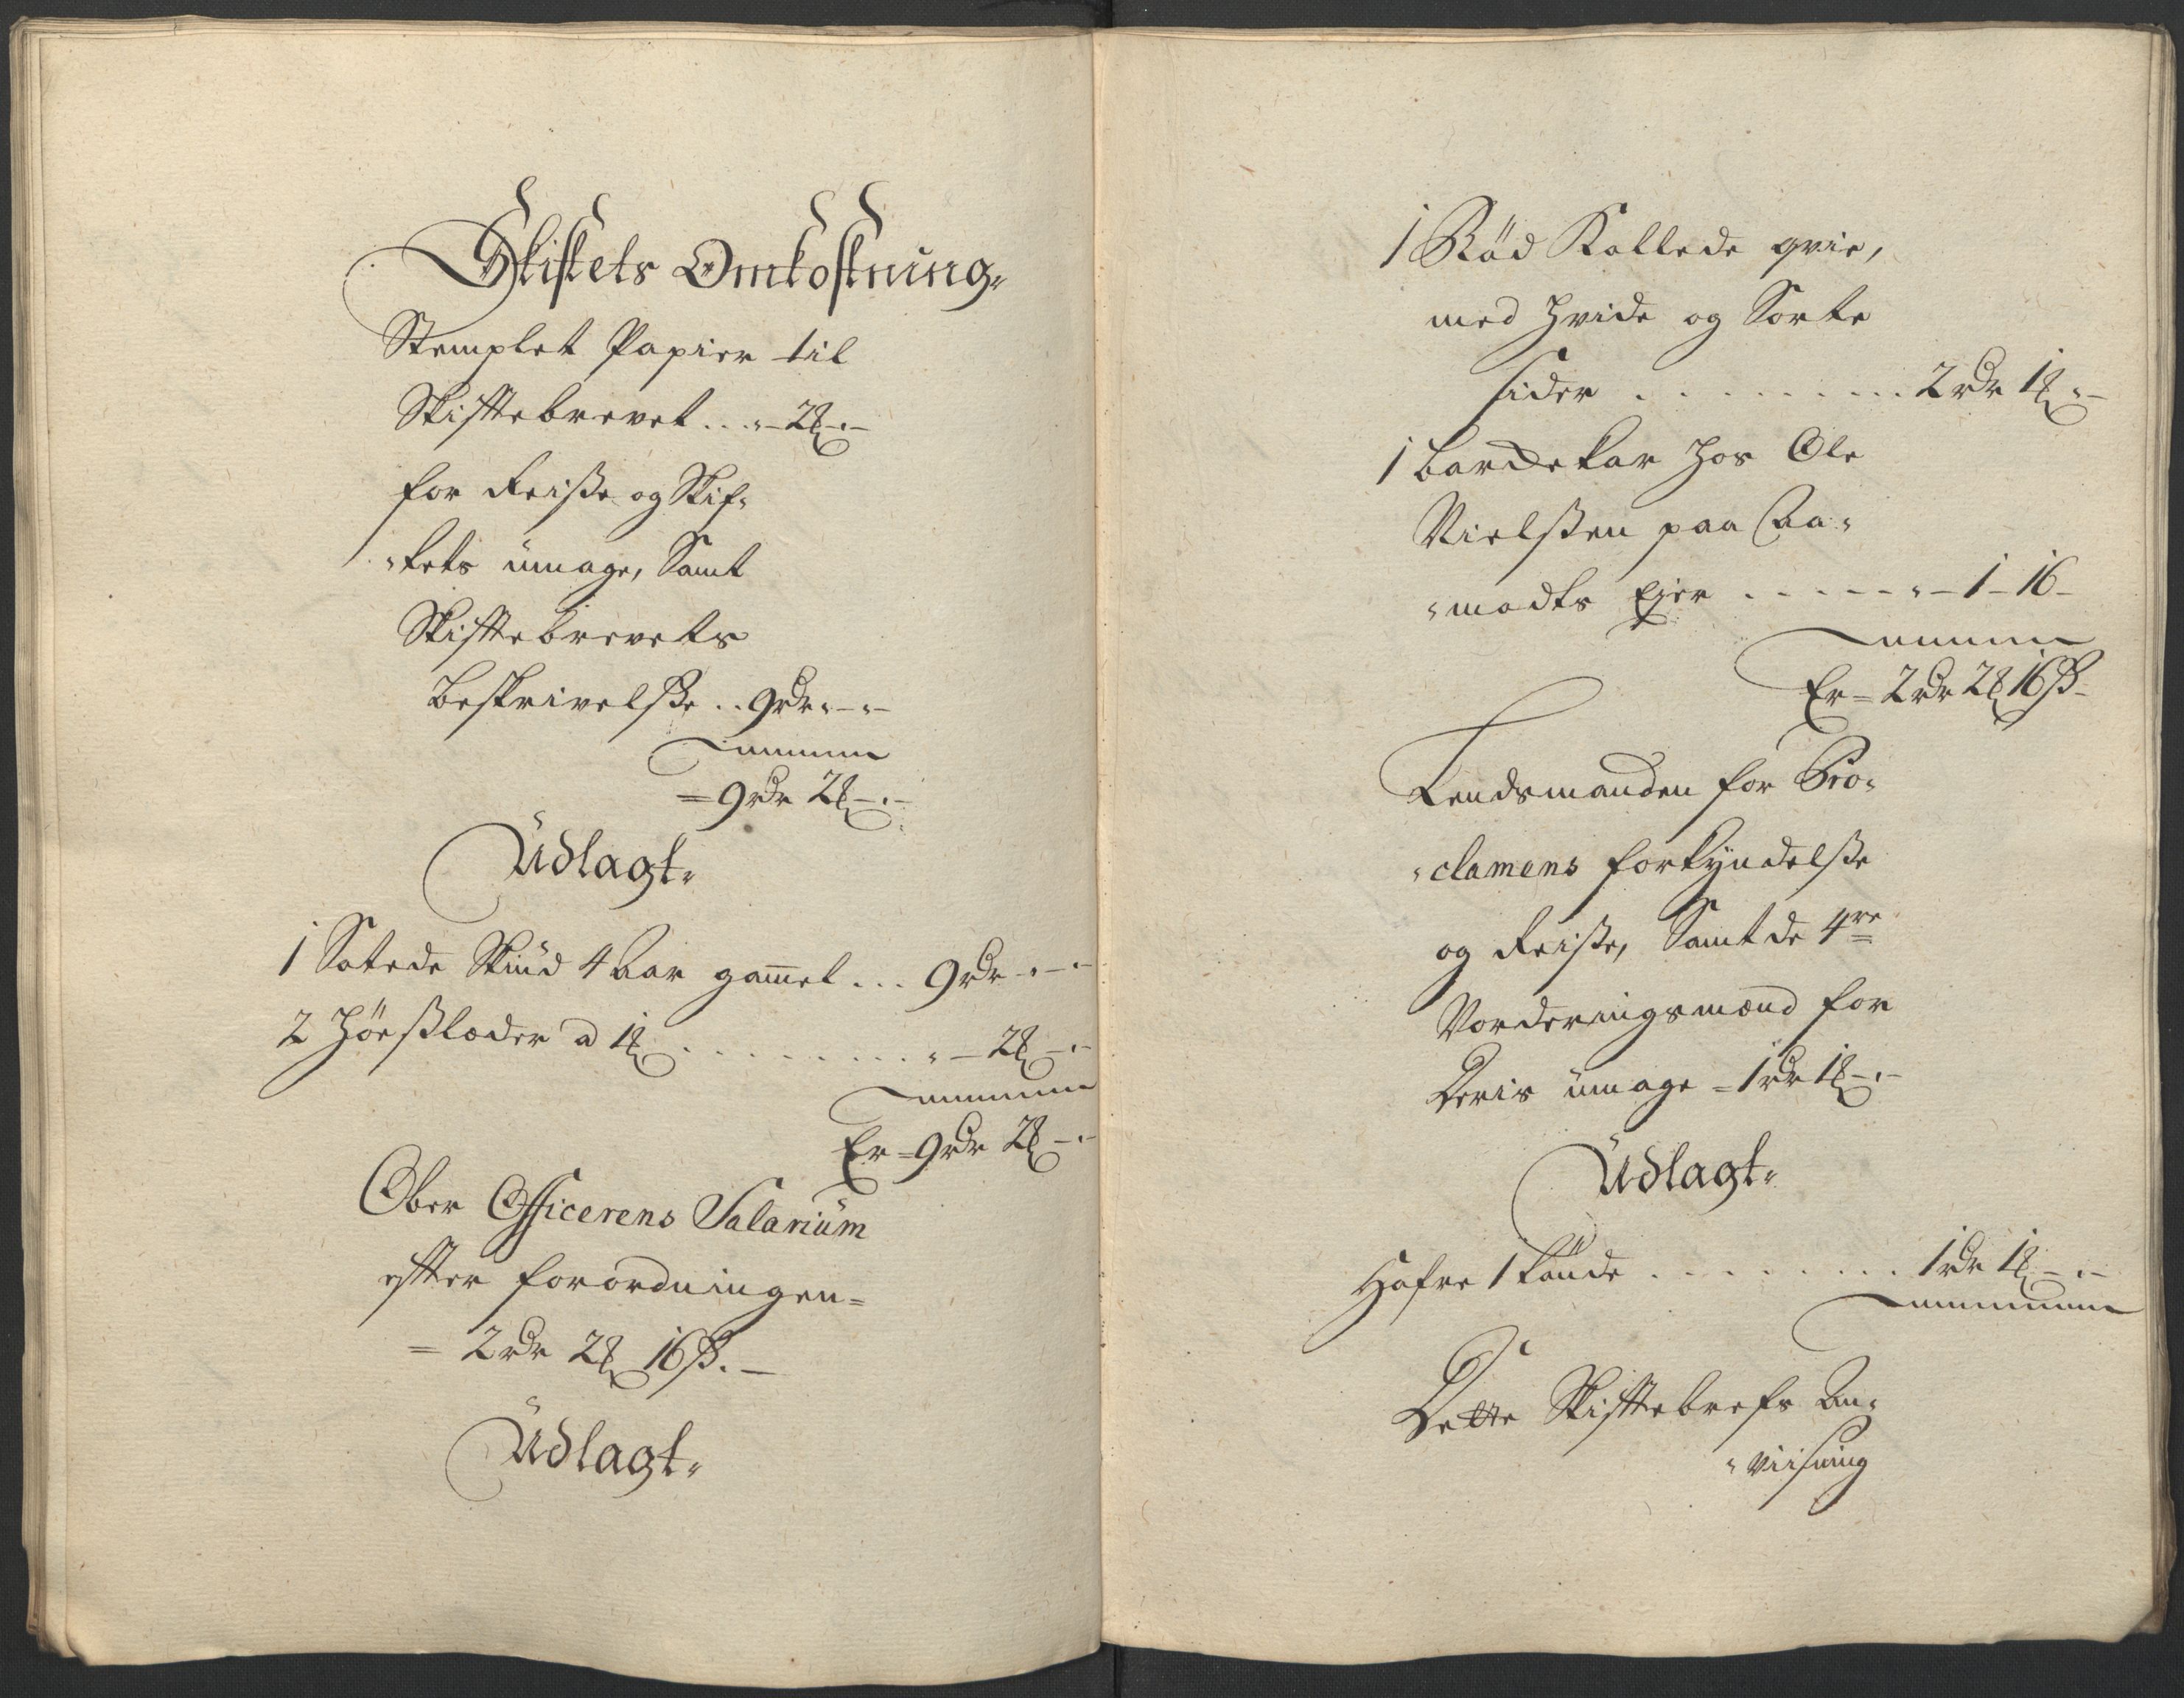 Skiftets Omkostning„
Stemplet Papier til
Skifttebrevet . . „ – 2 ℔ „ –
for Reiße og Skif„
„tets umage, Samt
Skifttebrevets
beskrivelße . . 9 rdr „ – „ –
= 9 rdr 2 ℔ – „ –
Udlagt„
1 Sotede Skiud 4 Aar gam̄el . . . 9 rdr – „ –
2 Höeßlæder a 1 ℔ . . . . . . . . . „ – 2 ℔ – „ –
Er = 9 rdr 2 ℔ – „ –
Ober Officerens Salarium
eftter forordningen =
= 2 rdr 2 ℔ 16 ß. –
Udlagt„
1 Röd Kollede qvie,
med hvide og Sorte
sider . . . . . . . . . 2 rdr 1 ℔ „ –
1 bardekar hos Ole
Nielßen paa Aa„
„modts Ejer . . . . . „ – 1 – 16 –
Er = 2 rdr 2 ℔ 16 ß –
Lendsmanden for Pro„
„clamens forkyndelße
og Reiße, Samt de 4re
Vorderingsmænd for
Deris umage = 1 rdr 1 ℔ – „ –
Udlagt„
Hafre 1 tünde . . . . . . . . 1 rdr 1 ℔ – „ –
Dette Skifttebrefs An„
„viisning